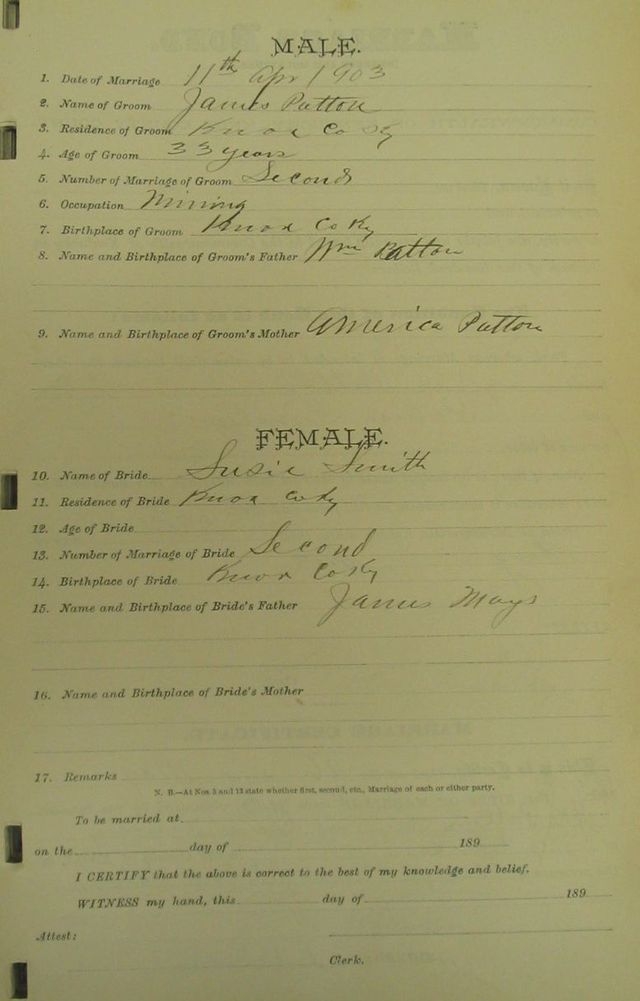 MALE.
1. Date of Marriage 11th Apr 1903
2. Name of Groom James Patton
3. Residence of Groom Knox Co Ky
4. Age of Groom 33 years
5. Number of Marriage of Groom Second
6. Occupation Mining
7. Birthplace of Groom Knox Co Ky
8. Name and Birthplace of Groom's Father Wm Patton
9. Name and Birthplace of Groom's Mother America Patton
FEMALE.
10. Name of Bride Susie Smith
11. Residence of Bride Knox Co Ky
12. Age of Bride
13. Number of Marriage of Bride Second
14. Birthplace of Bride Knox Co Ky
15. Name and Birthplace of Bride's Father James Mays
16. Name and Birthplace of Bride's Mother
17. Remarks
N. B.—At Nos 5 and 13 state whether first, second, etc., Marriage of each or either party.
To be married at
on the day of 189
I CERTIFY that the above is correct to the best of my knowledge and belief.
WITNESS my hand, this day of 189
Attest:
Clerk.